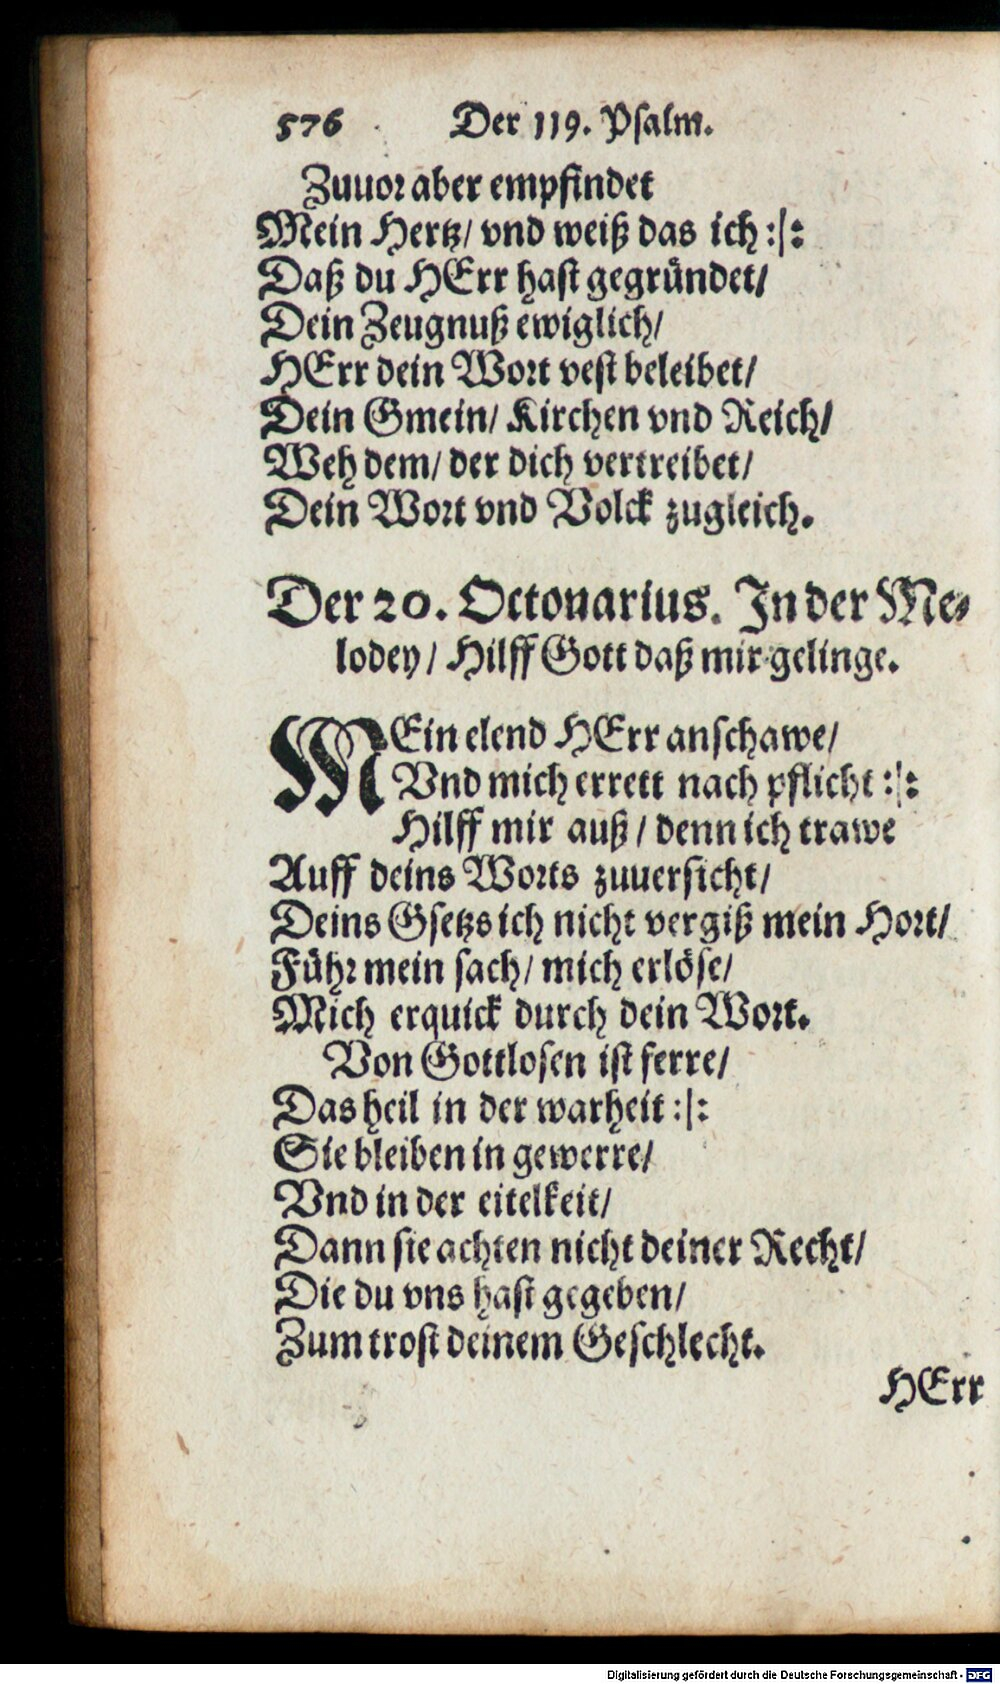 576 Der 119. Psalm.
Zuuor aber empfindet
Mein Hertz/ vnd weiß das ich :|:
Daß du HErr hast gegründet/
Dein Zeugnuß ewiglich/
HErr dein Wort vest beleibet/
Dein Gmein/ Kirchen vnd Reich/
Weh dem/ der dich vertreibet/
Dein Wort vnd Volck zugleich.
Der 20. Octonarius. In der Me-
lodey/ Hilff Gott daß mir gelinge.
MEin elend HErr anschawe/
Vnd mich errett nach pflicht :|:
Hilff mir auß/ denn ich trawe
Auff deins Worts zuuersicht/
Deins Gsetzs ich nicht vergiß mein Hort/
Führ mein sach/ mich erlöse/
Mich erquick durch dein Wort.
Von Gottlosen ist ferre/
Das heil in der warheit :|:
Sie bleiben in gewerre/
Vnd in der eitelkeit/
Dann sie achten nicht deiner Recht/
Die du vns hast gegeben/
Zum trost deinem Geschlecht.
HErr
Digitalisierung gefördert durch die Deutsche Forschungsgemeinschaft - DFG